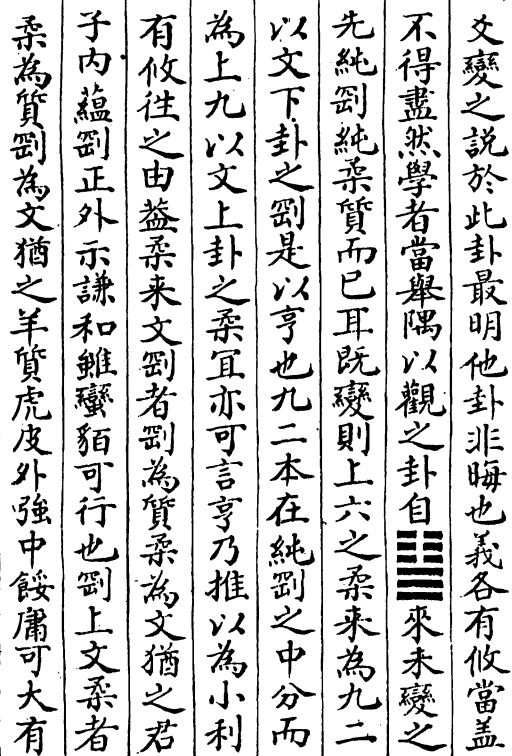 爻變之説於此卦最明他卦非晦也義各有攸當盖
不得盡然學者當舉隅以觀之卦自䷊來未變之
先純剛純柔質而已耳既變則上六之柔来為九二
以文下卦之剛是以亨也九二本在純剛之中分而
為上九以文上卦之柔冝亦可言亨乃推以為小利
有攸徃之由葢柔来文剛者剛為質柔為文猶之君
子内藴剛正外示謙和雖蠻貊可行也剛上文柔者
柔為質剛為文猶之羊質虎皮外強中餒庸可大有